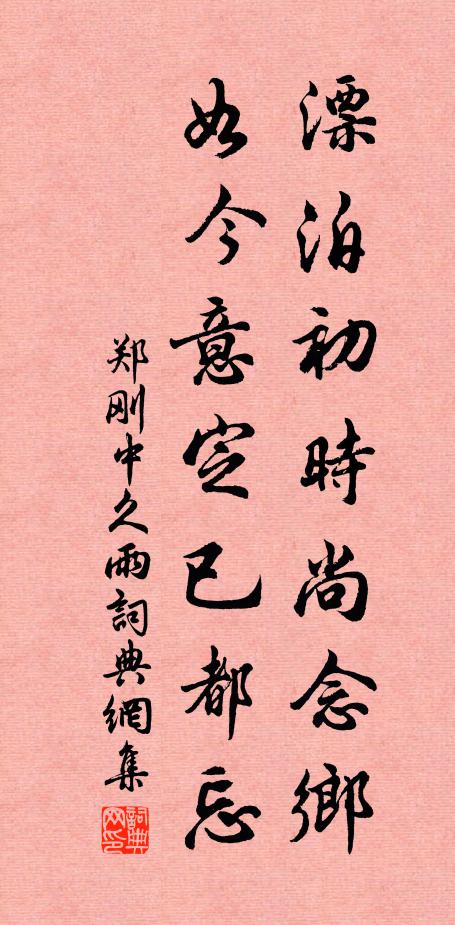 漂泊初時尚念鄉
如今意定已都忘
郑刚中久雨詞典網集
詞典网印